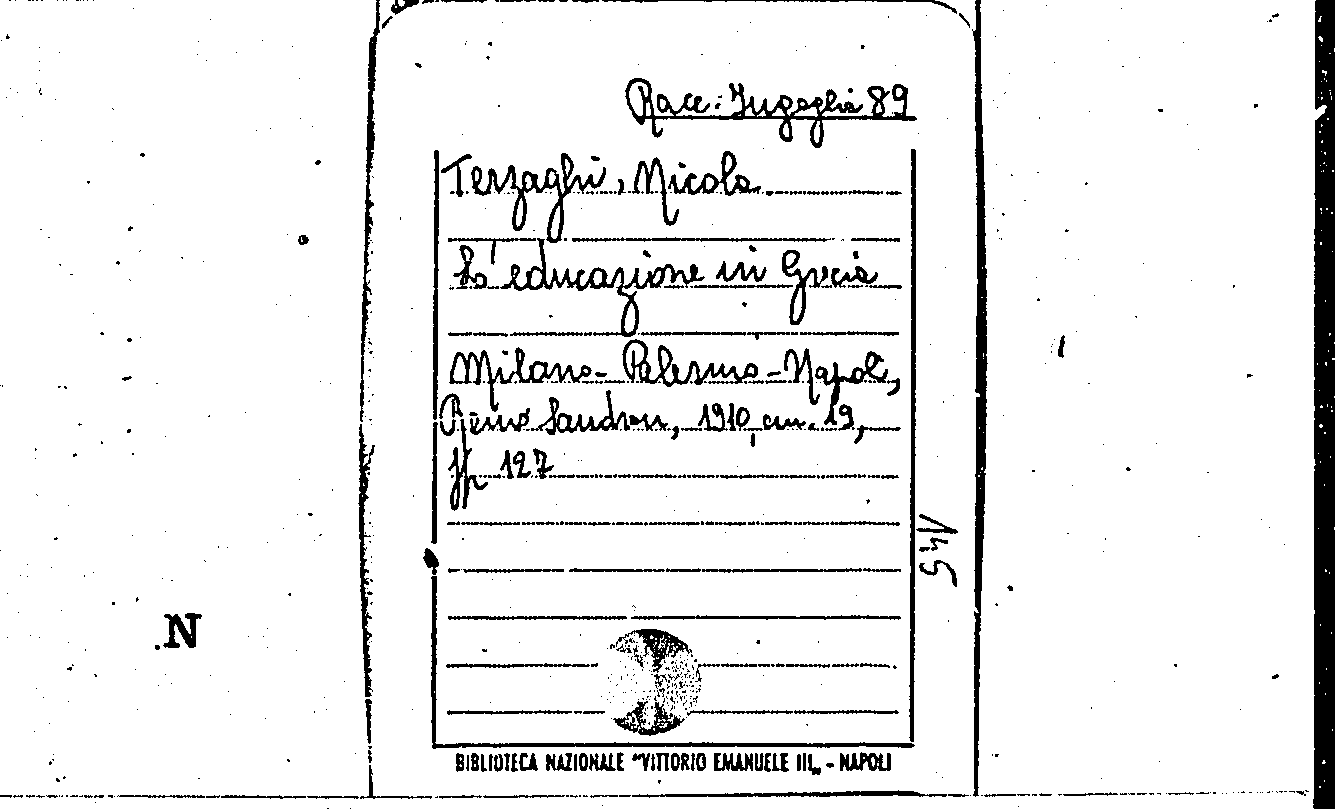 Race. Ingeglia 89
Terzaghi, Nicola.
L'educazione in Grecia
Milano - Palermo - Napoli,
Remo Sandron, 1910, cm. 19,
pp 127
N
BIBLIOTECA NAZIONALE "VITTORIO EMANUELE III„ - NAPOLI